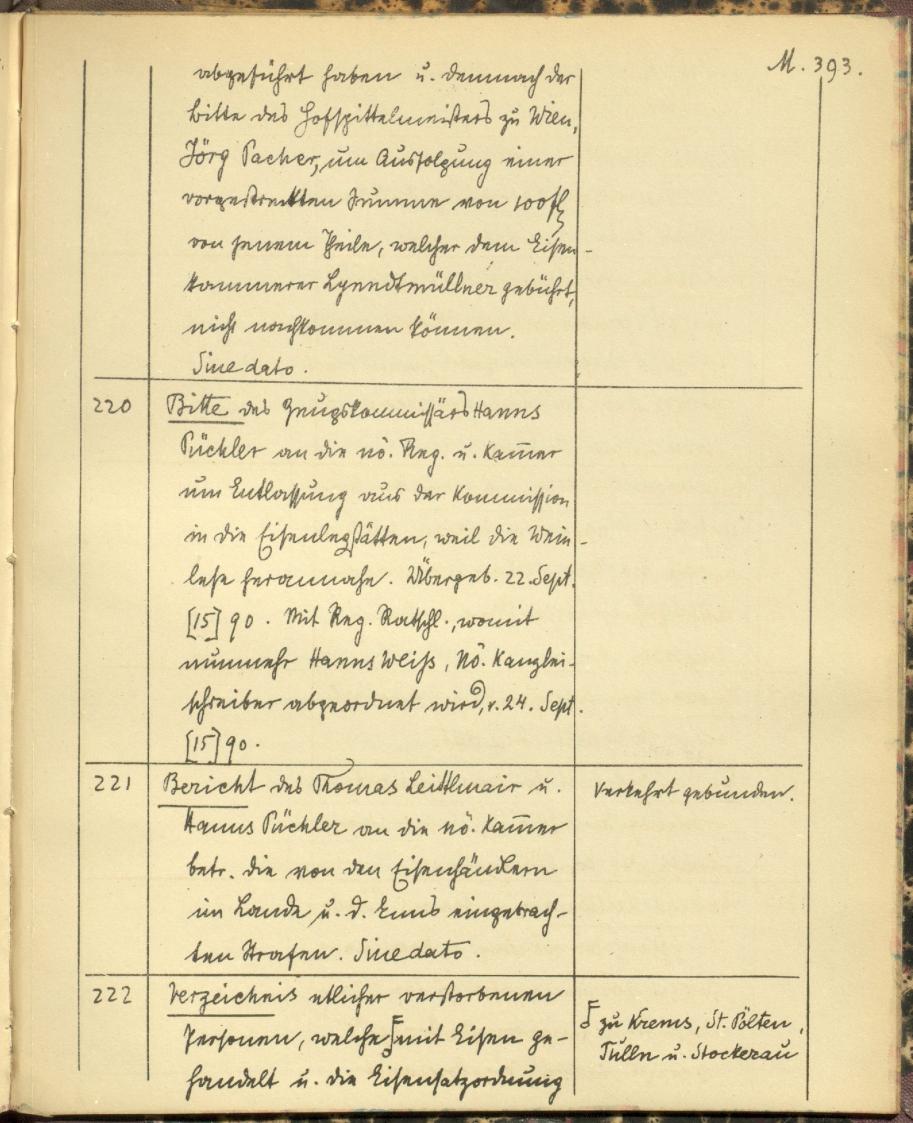 M. 393.
abgeführt haben u. demnach der
Bitte des Hofspittelmeisters zu Wien,
Jörg Pacher, um Ausfolgung einer
vorgestreckten Summe von 100 fl
von jenem Theile, welcher dem Eisen-
kammerer Lynndtmüllner gebührt,
nicht nachkommen können.
Sine dato.
220 Bitte des Zeugskommissärs Hanns
Püchler an die nö. Reg. u. Kam̅er
um Entlassung aus der Kommission
in die Eisenlegstätten, weil die Wein-
lese herannahe. Übergeb. 22. Sept.
[15]90. Mit Reg. Ratschl., womit
nunmehr Hanns Weiss, nö. Kanzlei-
schreiber abgeordnet wird, v. 24. Sept.
[15]90.
221 Bericht des Thomas Leittlmair u.
Hanns Püchler an die nö. Kam̅er
betr. die von den Eisenhändlern
im Lande u. d. Enns eingebrach-
ten Strafen. Sine dato.
Verkehrt gebunden.
222 Verzeichnis etlicher verstorbenen
Personen, welche ⌈ mit Eisen ge-
handelt u. die Eisensatzordnung
⌈ zu Krems, St. Pölten,
Tulln u. Stockerau